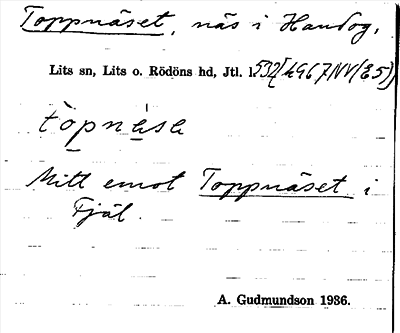 Toppnäset, näs i Handog,
Lits sn, Lits o. Rödöns hd, Jtl. l. 532[4967NV(E5)]
tòpnèse
Mitt emot Toppnäset i
Fjäl.
A. Gudmundson 1986.